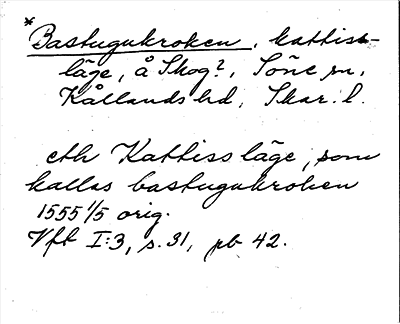 *Bastugukroken, kattiss-
läge, å Skog?, Söne sn,
Kållands hd, Skar. l.
eth Kattiss läge, som
kallas bastugukroken
1555 1/5 orig.
Vft I:3, s. 31, pb 42.